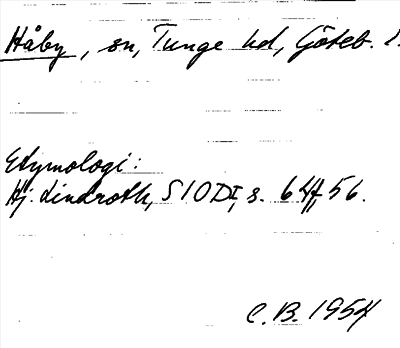 Håby, sn, Tunge hd, Göteb. l.
Etymologi:
Hj. Lindroth, SIODI, s. 64ff, 56.
C.B. 1954